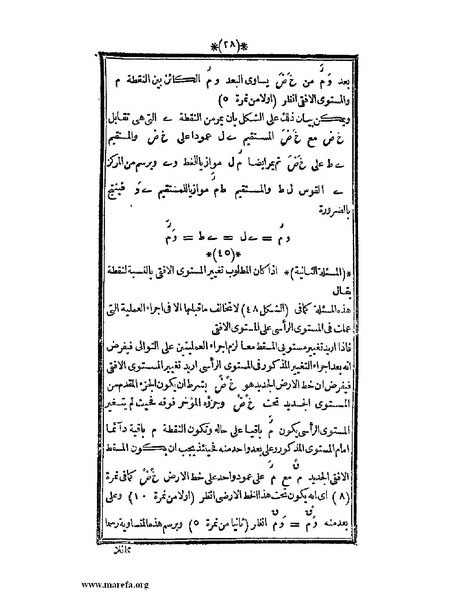 *(٢٨)*
بعد وَمَ من خَ ضَ يساوى البعد و مَ الكائن بين النقطة م
والمستوى الافقى انظر (اولا من نمرة ٥)
ويمكن بيان ذلك على الشكل بان يمر من النقطة ے التى هى تقابل
خ ض مع خَ ضَ المستقيم ے ل عمودا على خ ض والمستقيم
ے ط على خَ ضَ ثم يمر ايضا مَ ل موازيا للخط و ے ويرسم من المركز
ے القوس ل ط والمستقيم ط مَ موازيا للمستقيم ے وَ فينتج
بالضرورة
و مَ = ے ل = ے ط = وَ مَ
*(٤٥)*
*(المسئلة الثانية)* اذا كان المطلوب تغيير المستوى الافقى بالنسبة لنقطة
يقال
هذه المسئلة كما فى (الشكل ٤٨) لا تخالف ماقبلها الا فى اجراء العملية التى
عملت فى المستوى الرأسى على المستوى الافقى
فاذا اريد تغيير مستويى المسقط معا لزم اجراء العمليتين على التوالى فيفرض
انه بعد اجراء التغيير المذكور فى المستوى الرأسى اريد تغيير المستوى الافقى
فيفرض ان خط الارض الجديد هو خَ ضَ بشرط ان يكون الجزء المقدم من
المستوى الجديد تحت خَ ضَ وجزؤه المؤخر فوقه فحيث لم يتغير
المستوى الرأسى يكون مَ باقيا على حاله وتكون النقطة م باقية دائما
امام المستوى المذكور وعلى بعد واحد منه فحينئذ يجب ان يكون المسقط
الافقى الجديد م مع مَ على عمود واحد على خط الارض خَ ضَ كما فى نمرة
(٨) اى انه يكون تحت هذا الخط الارضى انظر (اولا من نمرة ١٠) وعلى
بعد منه وَ م = وَ م انظر (ثانيا من نمرة ٥) وبرسم هذه المتساوية رسما
مماثلا
www.marefa.org